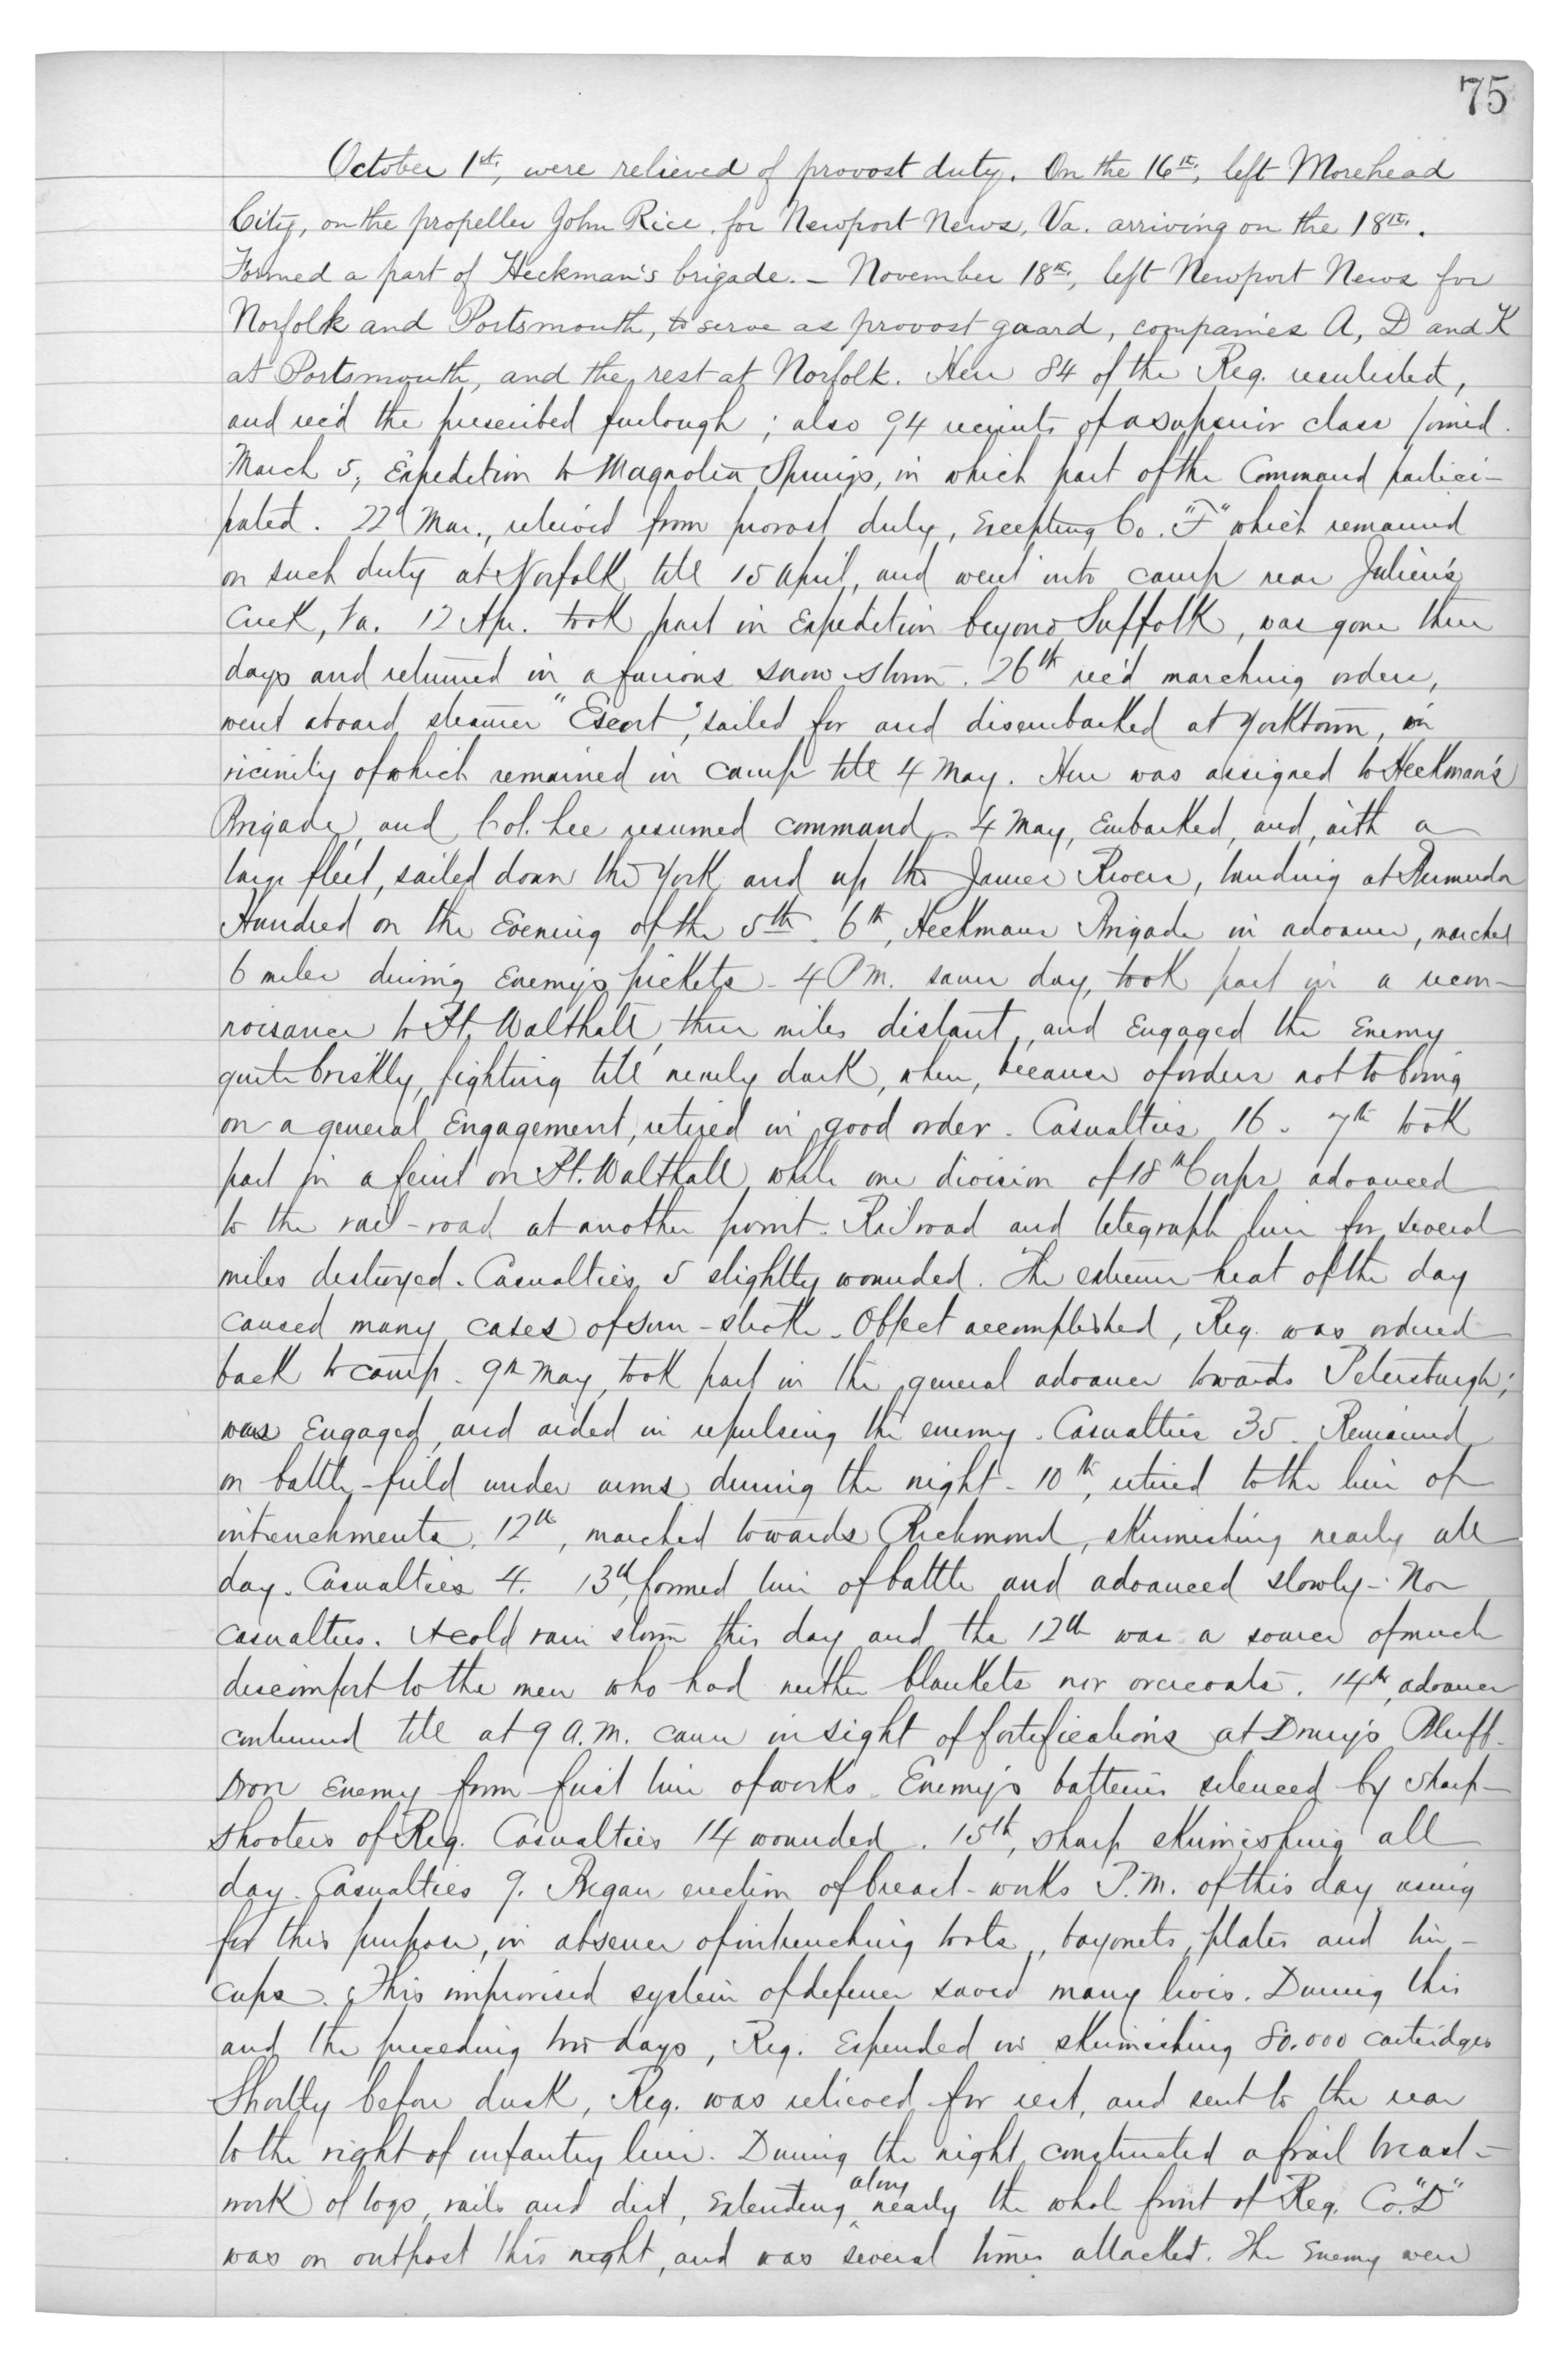 75
October 1st, were relieved of provost duty. On the 16th, left Morehead
City, on the propeller John Rice, for Newport News, Va. arriving on the 18th.
Formed a part of Heckman's brigade. - November 18th, left Newport News for
Norfolk and Portsmouth, to serve as provost guard, companies A, D and K
at Portsmouth, and the rest at Norfolk. Here 84 of the Reg. reenlisted,
and rec'd the prescribed furlough; also 94 recruits of a superior class joined.
March 5, Expedition to Magnolia Springs, in which part of the Command partici-
pated. 22d Mar., relieved from provost duty, Excepting Co. "F" which remained
on such duty at Norfolk till 15 April, and went into camp near Julien's
Creek, Va. 12 Apr. took part in Expedition beyond Suffolk, was gone three
days and returned in a furious snow storm. 26th rec'd marching orders,
went aboard steamer "Escort", sailed for and disembarked at Yorktown, in
vicinity of which remained in camp till 4 May. Here was assigned to Heckman's
Brigade, and Col. Lee resumed command. 4 May, Embarked, and, with a
large fleet, sailed down the York and up the James Rivers, landing at Bermuda
Hundred on the Evening of the 5th. 6th, Heckmans Brigade in advance, marched
6 miles driving Enemy's pickets - 4 P.M. same day, took part in a recon-
noisance to Pt. Walthall, three miles distant, and Engaged the Enemy
quite briskly, fighting till nearly dark, when, because of orders not to bring
on a general Engagement, retired in good order. Casualties 16. 7th took
part in a feint on Pt. Walthall, while one division of 18th Corps advanced
to the rail-road at another point. Railroad and telegraph line for several
miles destroyed. Casualties, 5 slightly wounded. The extreme heat of the day
caused many cases of sun-stroke. Object accomplished, Reg. was ordered
back to camp. 9th May, took part in the general advance towards Petersburgh;
was Engaged, and aided in repulsing the enemy. Casualties 35. Remained
on battle-field under arms during the night - 10th, retired to the line of
intrenchments. 12th, marched towards Richmond, skirmishing nearly all
day. Casualties 4. 13th, formed line of battle and advanced slowly - No
casualties. A cold rain storm this day and the 12th was a source of much
discomfort to the men who had neither blankets nor overcoats. 14th, advance
continued till at 9 A.M. came in sight of fortifications at Drury's Bluff.
Drove Enemy from first line of works. Enemy's batteries silenced by sharp-
shooters of Reg. Casualties 14 wounded. 15th, sharp skirmishing all
day. Casualties 9. Began erection of breast-works P.M. of this day using
for this purpose, in absence of intrenching tools, bayonets, plates and tin-
cups. This improvised system of defence saved many lives. During this
and the preceding two days, Reg. Expended in skirmishing 80.000 cartridges
Shortly before dusk, Reg. was relieved for rest, and sent to the rear
to the right of infantry line. During the night constructed a frail breast-
work of logs, rails and dirt, Extending along nearly the whole front of Reg. Co. "D"
was on outpost this night, and was several times attacked. The Enemy were